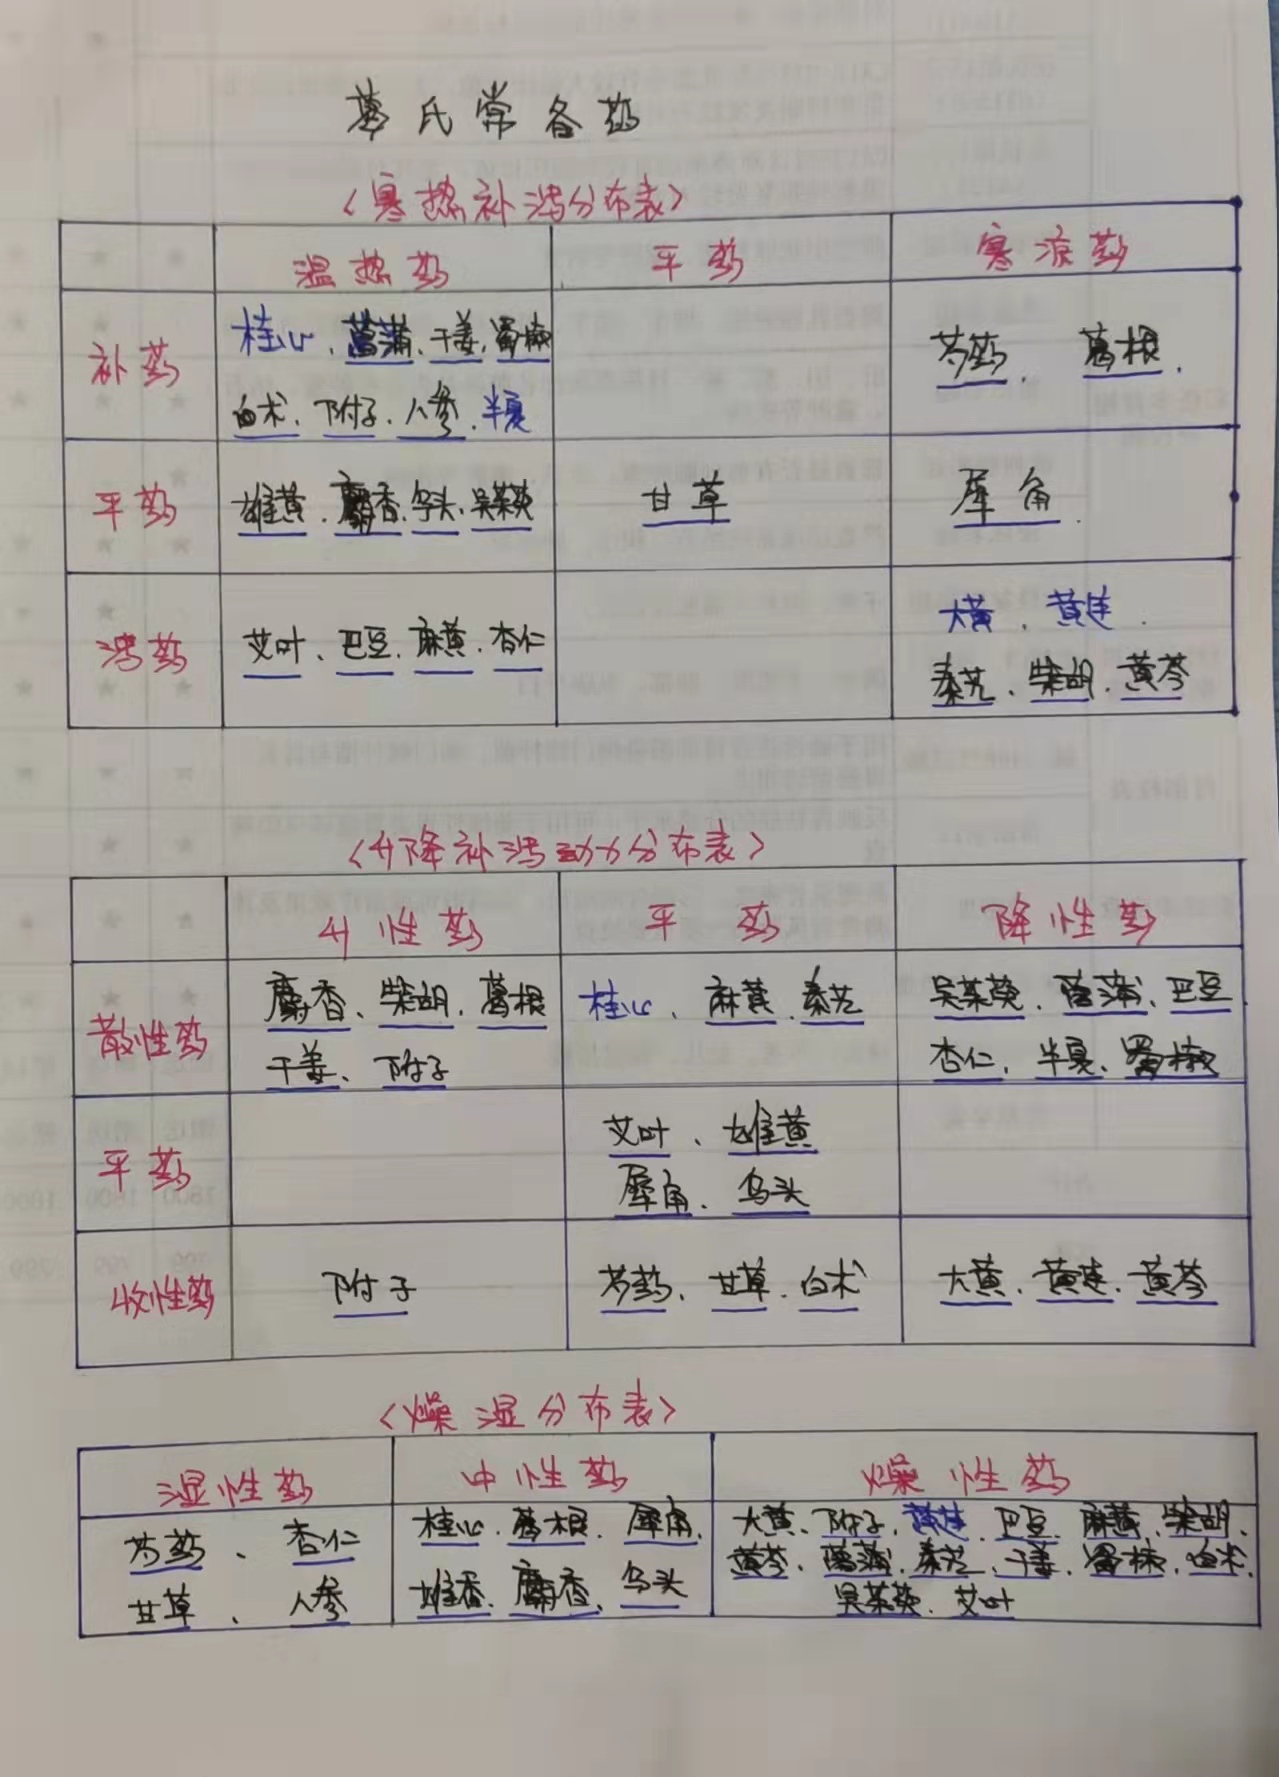 葛氏常备药
〈寒热补泻分布表〉
温热药 平药 寒凉药
补药 桂心、菖蒲、干姜、蜀椒 芍药、葛根、
白术、附子、人参、半夏
平药 雄黄、麝香、乌头、吴茱萸 甘草 犀角
泻药 艾叶、巴豆、麻黄、杏仁 大黄、黄连、
秦艽、柴胡、黄芩
〈升降补泻动力分布表〉
升性药 平药 降性药
散性药 麝香、柴胡、葛根 桂心、麻黄、秦艽 吴茱萸、菖蒲、巴豆
干姜、附子 杏仁、半夏、蜀椒
平药 艾叶、雄黄
犀角、乌头
收性药 附子 芍药、甘草、白术 大黄、黄连、黄芩
〈燥湿分布表〉
湿性药 中性药 燥性药
芍药、杏仁 桂心、葛根、犀角、 大黄、附子、黄连、巴豆、麻黄、柴胡、
甘草、人参 雄香、麝香、乌头 黄芩、菖蒲、秦艽、干姜、蜀椒、白术、
吴茱萸、艾叶